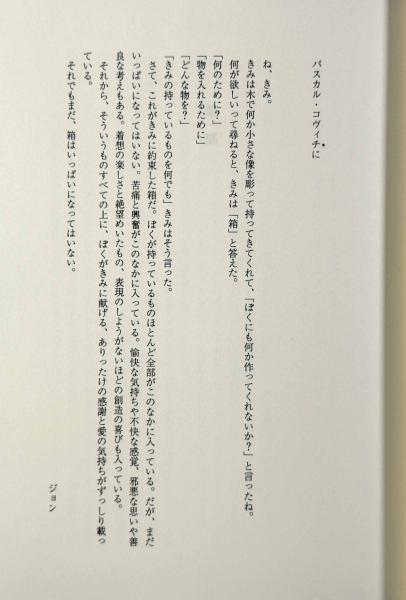 パスカル・コヴィチ*に
ね、きみ。
きみは木で何か小さな像を彫って持ってきてくれて、「ぼくにも何か作ってくれないか?」と言ったね。
何が欲しいって尋ねると、きみは「箱」と答えた。
「何のために?」
「物を入れるために」
「どんな物を?」
「きみの持っているものを何でも」きみはそう言った。
さて、これがきみに約束した箱だ。ぼくが持っているものほとんど全部がこのなかに入っている。だが、まだ
いっぱいになってはいない。苦痛と興奮がこのなかに入っている。愉快な気持ちや不快な感覚、邪悪な思いや善
良な考えもある。着想の楽しさと絶望めいたもの、表現のしようがないほどの創造の喜びも入っている。
それから、そういうものすべての上に、ぼくがきみに献げる、ありったけの感謝と愛の気持ちがずっしり載っ
ている。
それでもまだ、箱はいっぱいになってはいない。
ジョン